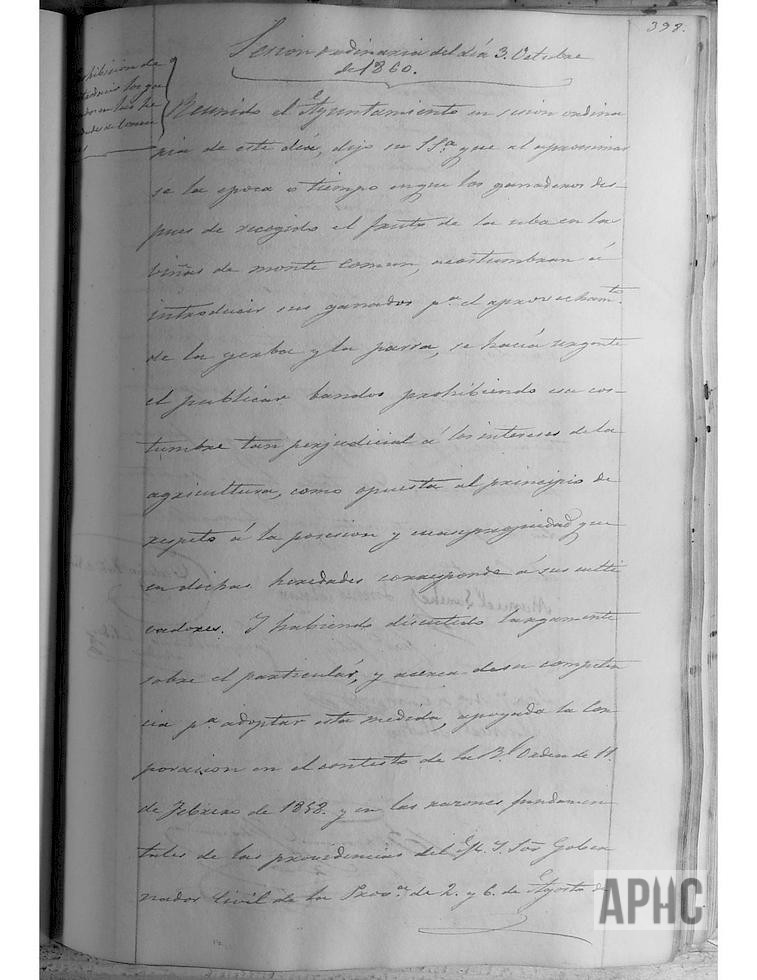 398.
Sesion ordinaria del día 3. Octubre
de 1860.
hibicion de
los gana
dos en las he
Reunido el Ayuntamiento en sesion ordina
ria de este día, dijo su SSª que al aproximar
se la epoca o tiempo en que los ganaderos des-
pues de recogido el fruto de la uba en las
viñas de monte comun, acostumbran á
introducir sus ganados pª el aprovechamto.
de la yerba y la parra, se hacía urgente
el publicar bandos prohibiendo esa cos-
tumbre tan perjudicial á los intereses de la
agricultura, como opuesta al principio de
respeto á la posesion y cuasipropiedad que
en dichas heredades corresponde á sus culti
vadores. Y habiendo discutido largamente
sobre el particular, y acerca de su competen
cia pª adoptar esta medida, apoyada la Cor
poracion en el contesto de la Rl. Orden de 11.
de Febrero de 1858. y en las razones fundamen
tales de las providencias del Sor Gober
nador Civil de la Provª de 2. y 6. de Agosto de
Manuel Sanchez
APHC